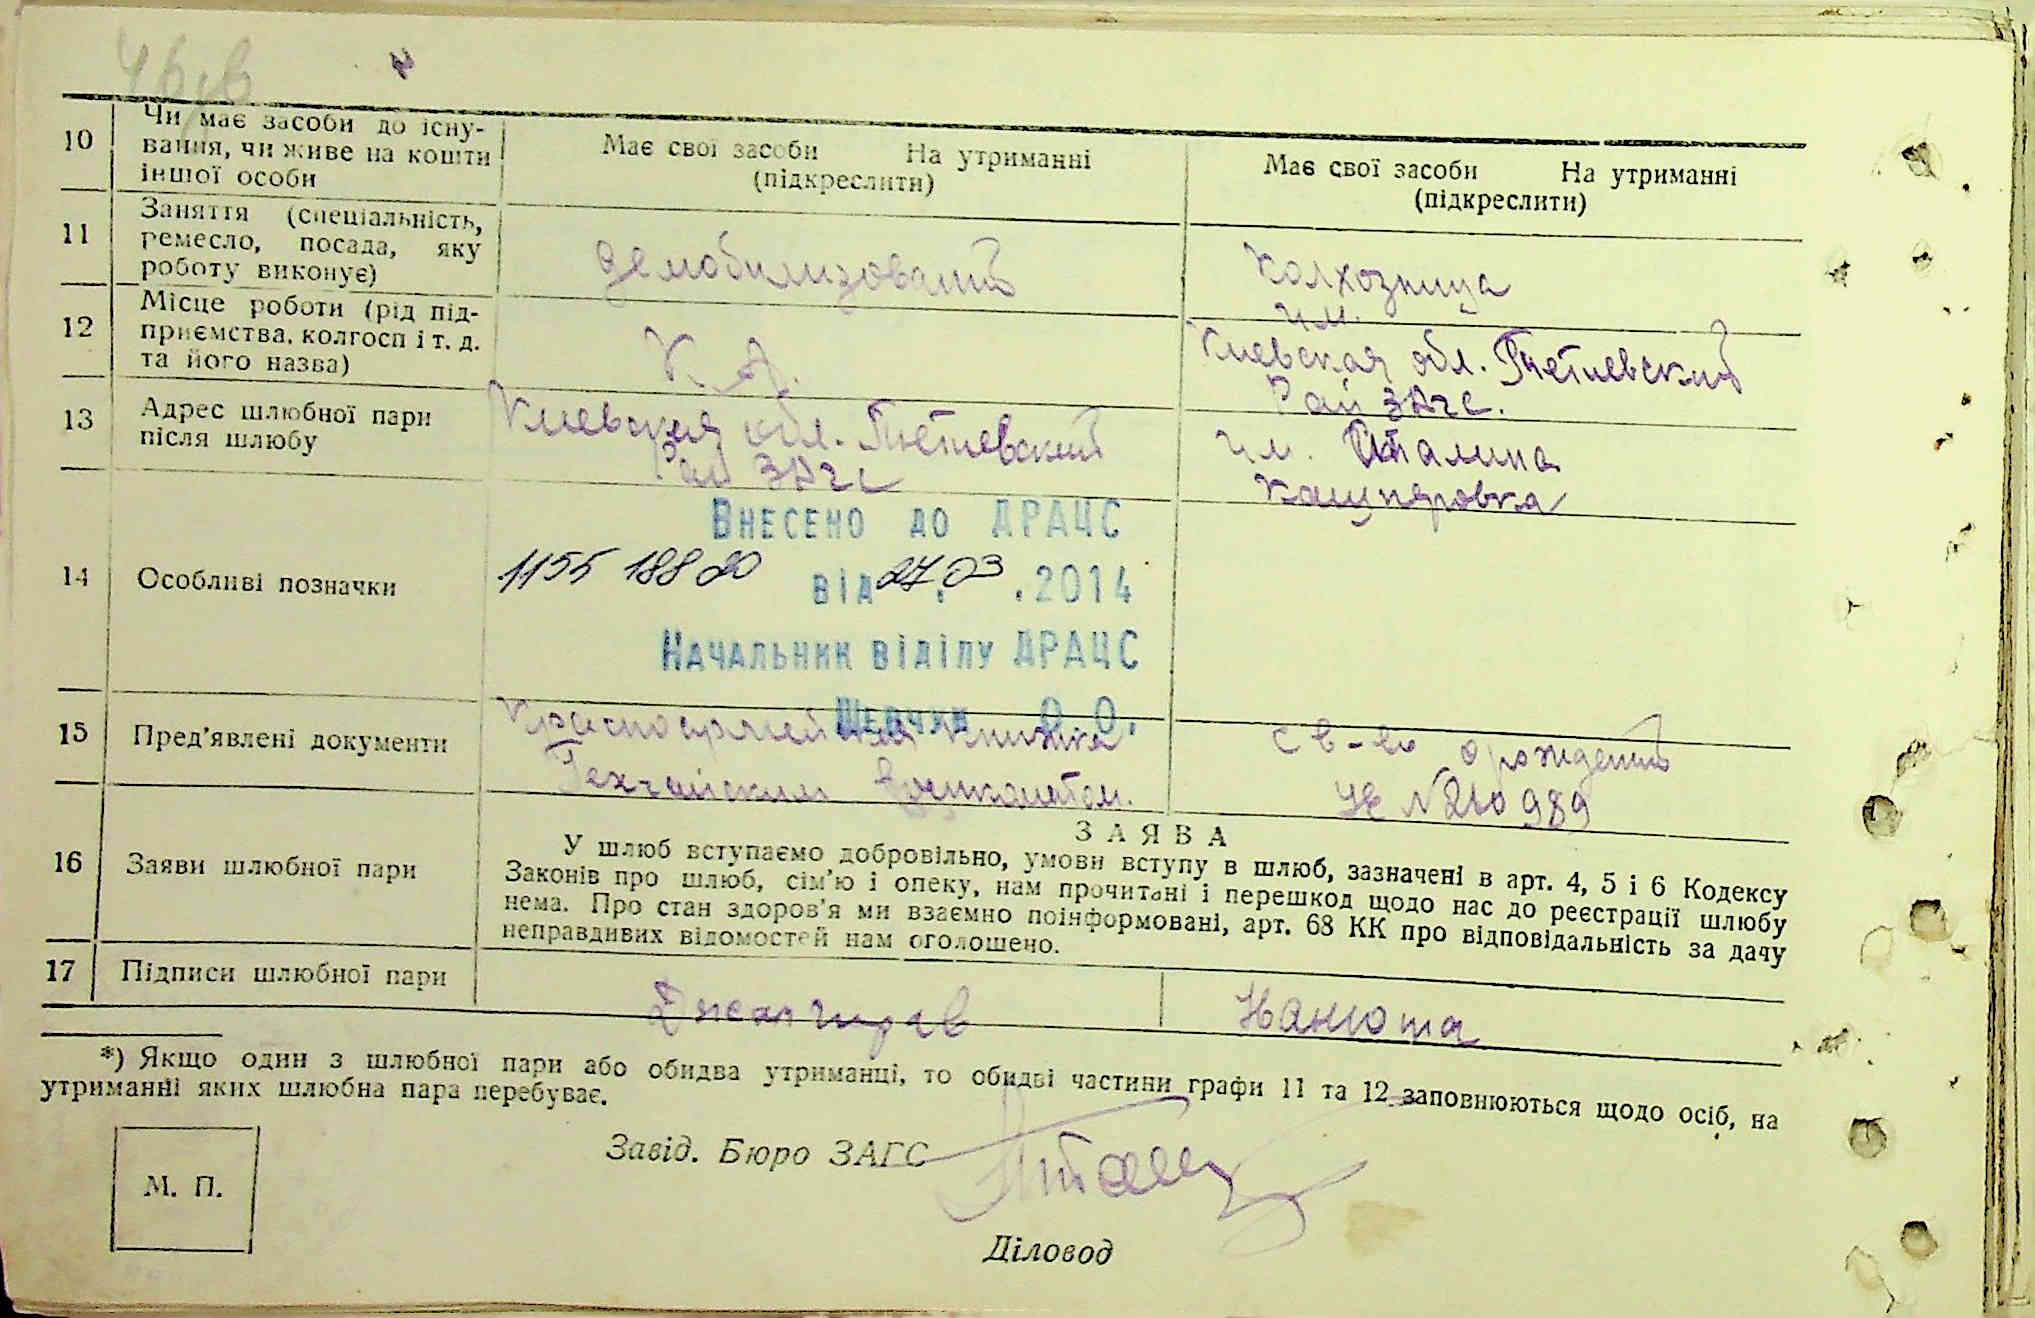 10
Чи має засоби до існу-
вання, чи живе на кошти
іншої особи
Має свої засоби На утриманні
(підкреслити)
Має свої засоби На утриманні
(підкреслити)
11
Заняття (спеціальність,
ремесло, посада, яку
роботу виконує)
демобилизований
Колхозница
им.
12
Місце роботи (рід під-
приємства, колгосп і т. д.
та його назва)
К. А.
Киевская обл. Тетиевский
Рай ЗАГС.
13
Адрес шлюбної пари
після шлюбу
Киевская обл. Тетиевский
Рай ЗАГС
им. Сталина
Кашперовка
14
Особливі позначки
Внесено до ДРАЦС
1155 188 20 від 27.03.2014
Начальник відділу ДРАЦС
Шевчук О.О.
15
Пред'явлені документи
Красноармейская Книжка
военкоматом.
св-во о рождений
№ 210989
16
Заяви шлюбної пари
ЗАЯВА
У шлюб вступаємо добровільно, умови вступу в шлюб, зазначені в арт. 4, 5 і 6 Кодексу
Законів про шлюб, сім'ю і опеку, нам прочитані і перешкод щодо нас до реєстрації шлюбу
нема. Про стан здоров'я ми взаємно поінформовані, арт. 68 КК про відповідальність за дачу
неправдивих відомостей нам оголошено.
17
Підписи шлюбної пари
Джангиров
Нанюта
*) Якщо один з шлюбної пари або обидва утриманці, то обидві частини графи 11 та 12 заповнюються щодо осіб, на
утриманні яких шлюбна пара перебуває.
Завід. Бюро ЗАГС
М. П.
Діловод